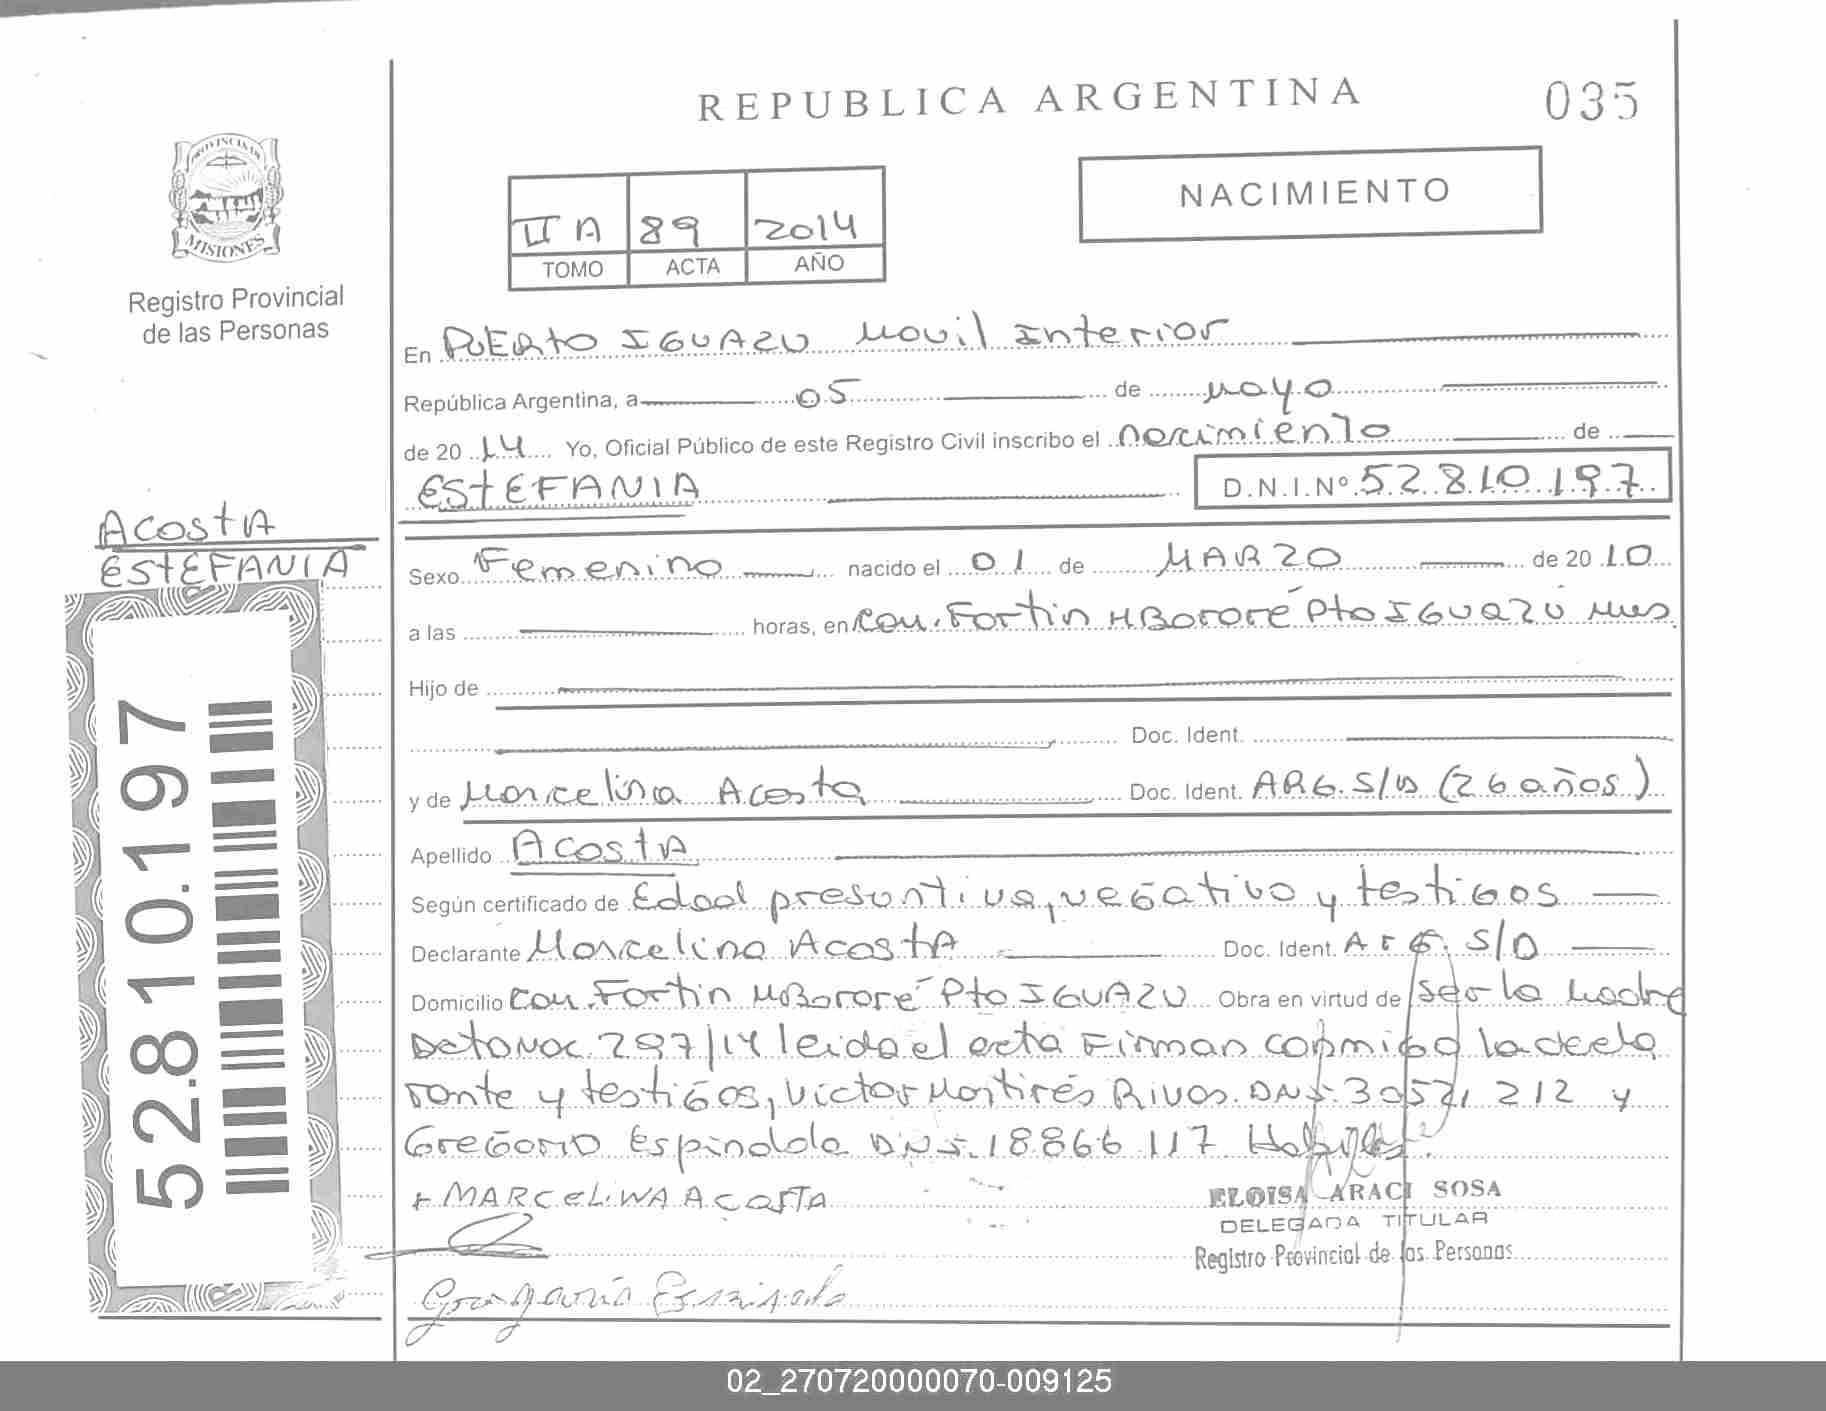 REPUBLICA ARGENTINA
035
PROVINCIA DE
MISIONES
Registro Provincial
de las Personas
II A 89 2014
TOMO ACTA AÑO
NACIMIENTO
En PUERTO IGUAZU Movil Interior
República Argentina, a 05 de mayo
de 20 14 Yo, Oficial Público de este Registro Civil inscribo el nacimiento de
ESTEFANIA D.N.I.Nº 52.810.197
ACOSTA
ESTEFANIA
Sexo Femenino nacido el 01 de MARZO de 20 10
a las horas, en Com. Fortin MBororé Pto IGUAZU Mnes
Hijo de
Doc. Ident.
y de Marcelina Acosta Doc. Ident. ARG. S/D (26 años)
Apellido ACOSTA
Según certificado de Edad presuntiva, negativo y testigos
Declarante Marcelina ACOSTA Doc. Ident. ARG. S/D
Domicilio Com. Fortin MBororé Pto IGUAZU Obra en virtud de ser la madre
Dcto Nac. 297/14 leida el acta Firman conmigo la decla
rante y testigos, Victor Martires Rivas. DNI. 30521 212 y
GREGORIO Espindola DNI. 18866 117 Habiles.
+ MARCELINA ACOSTA
ELOISA ARACI SOSA
DELEGADA TITULAR
Registro Provincial de las Personas
52.810.197
02_270720000070-009125